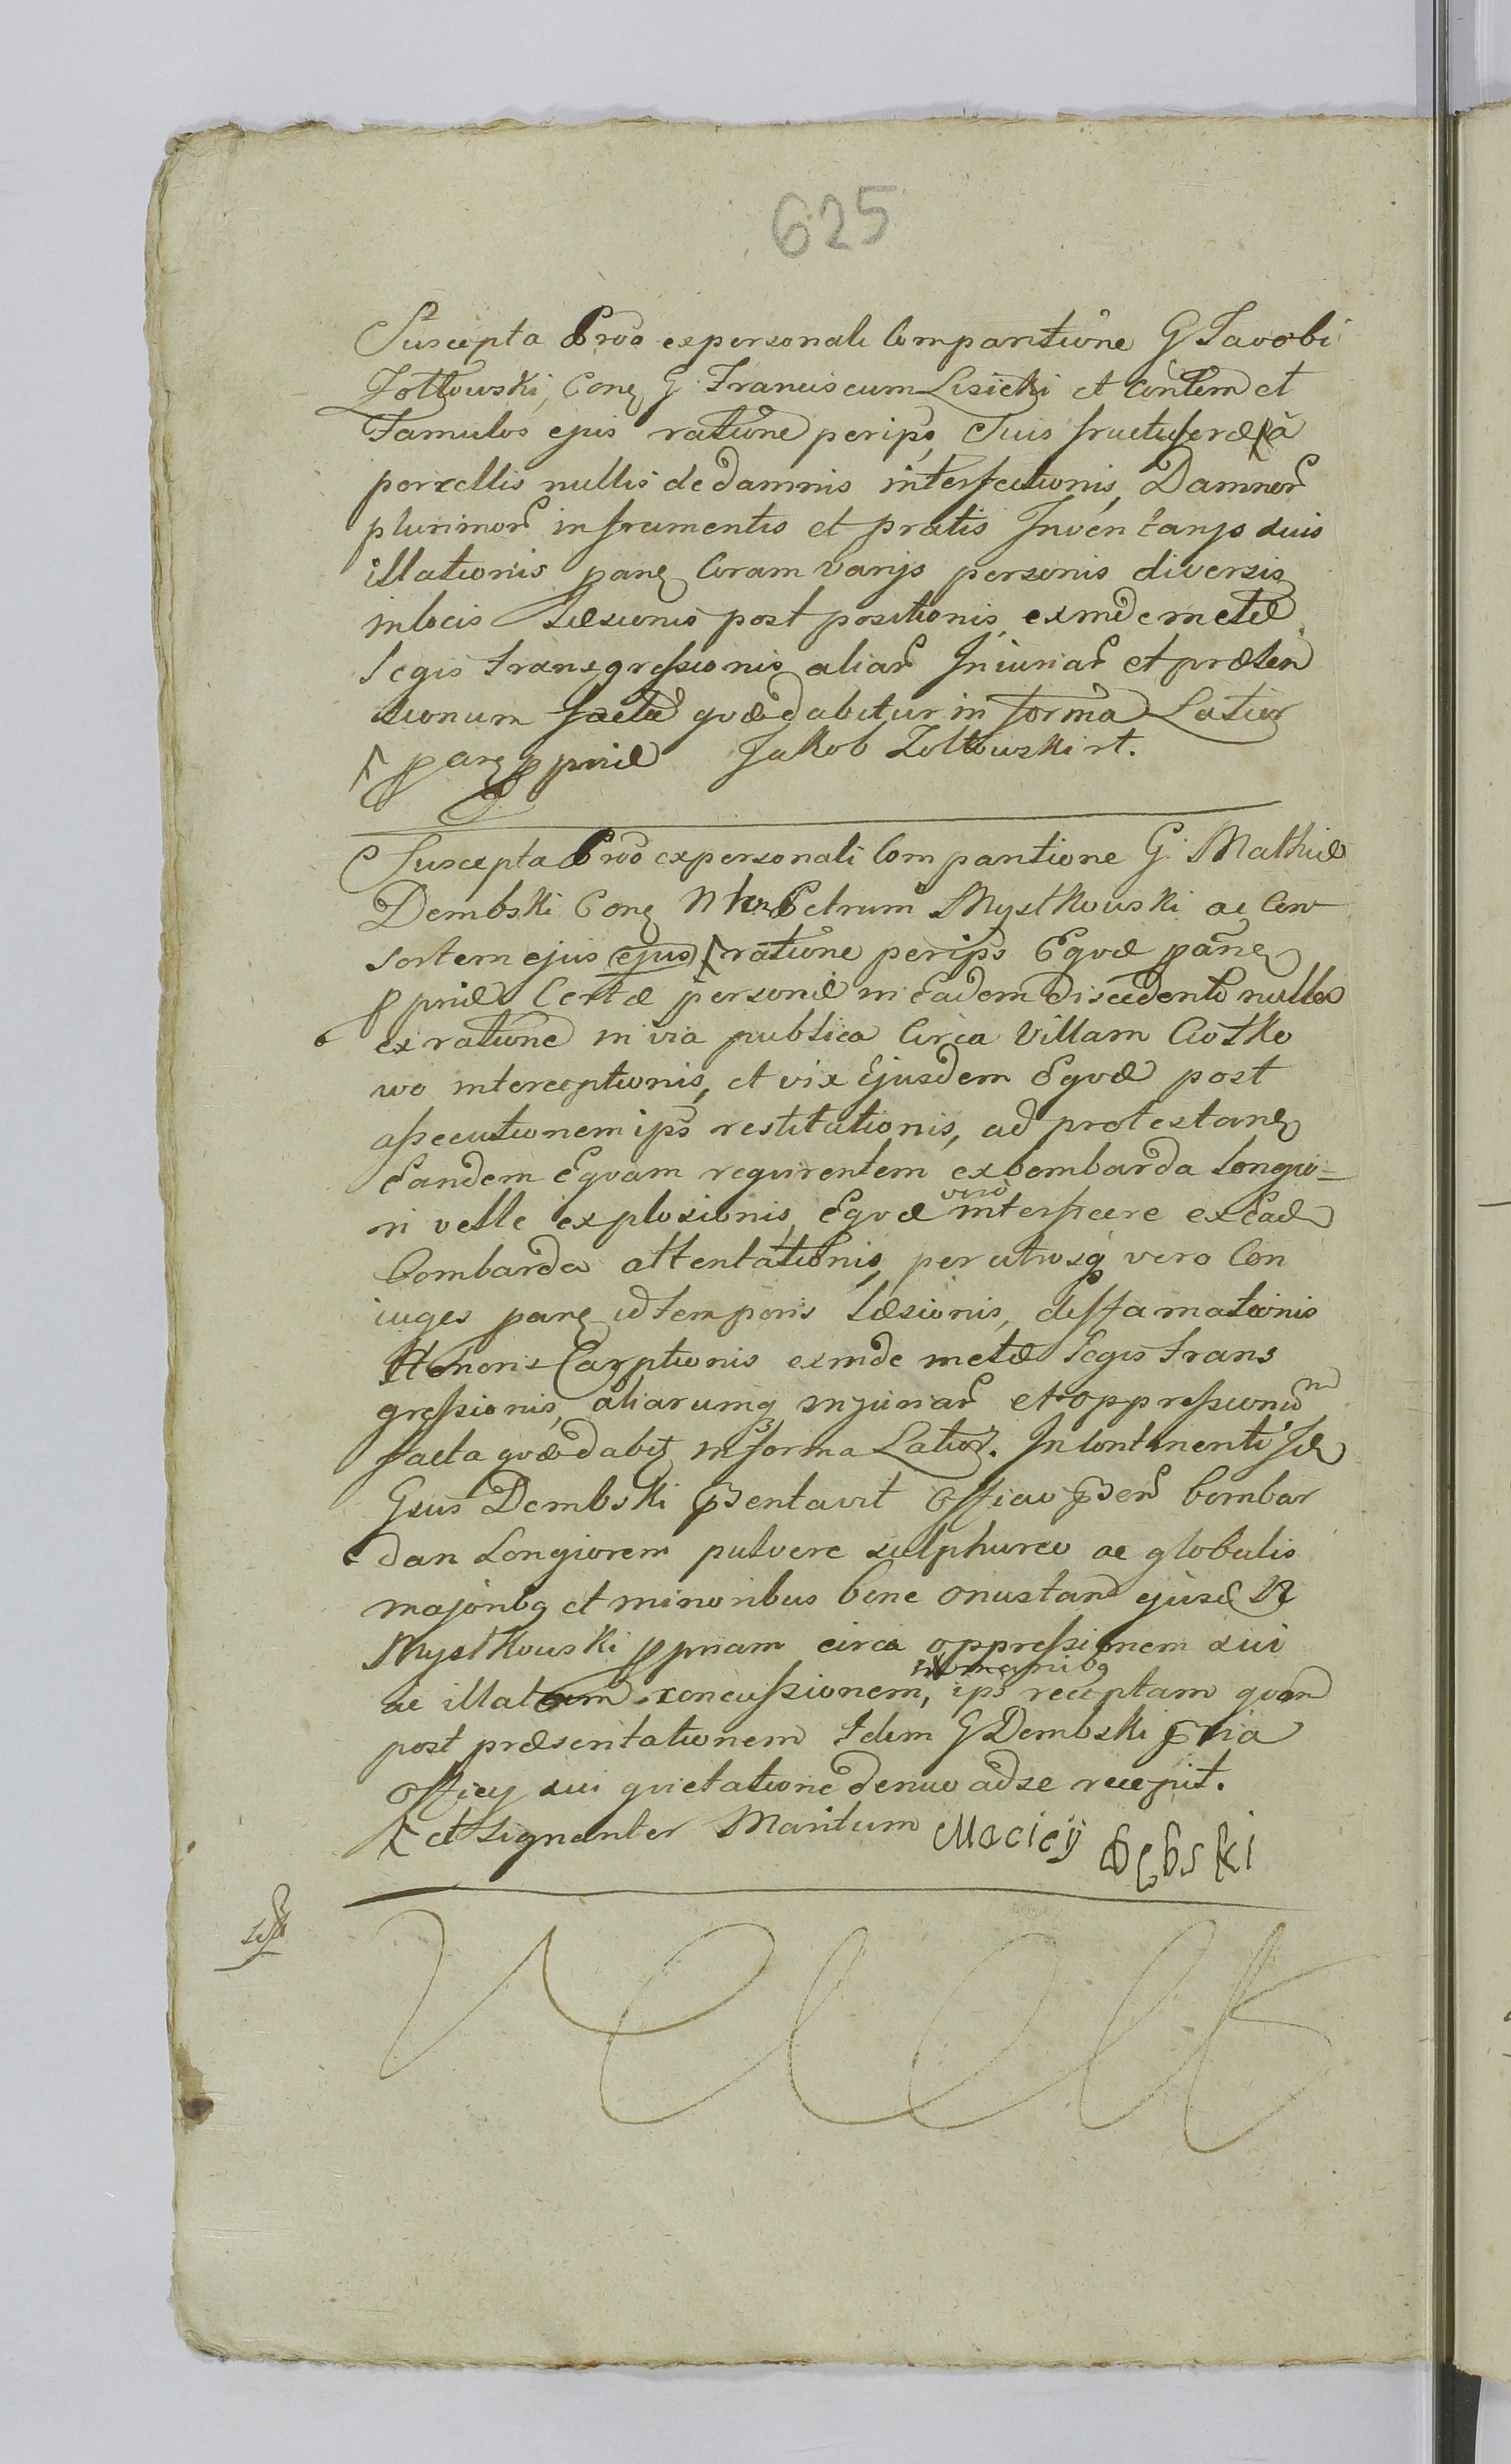 625
Suscepta Prõo ex personali Comparitione G Jacobi
Zołtowski, Cont͠ G Franciscum Lisicki et Contem et
Famulos ejus ratione per ips̃ Suis fructiferæ ã
porcellis nullis de damnis interfectionis, Damnor̃
plurimor̃ in frumentis et pratis Inventarijs suis
illationis Coram varijs personis diversis
in locis Læsionis post positionis exinde metæ
Legis transgressionis aliar̃ Iniuriar̃ et præten
sionum facta quæ dabitur in forma Latior
Jakob Zołtowski rt.
Suscepta Prõo ex personali Comparitione G. Mathiæ
Dembski Petrum Mystkowski ac Con
sortem ejus ejus ratione per ips̃ Equæ
Certæ personæ in eadem discedenti nulla
ex ratione in via publica Circa Villam Ciotko
wo interceptionis, et vix Ejusdem Equæ post
assecutionem ips̃ restitutionis, ad
Eandem Equam requirentem ex bombarda longio=
ri velle explosionis, Equæ vero interficere ex Ead
bombarda attentationis, per utrosq vero Con
iuges id temporis læsionis, diffamationis
Honoris Carptionis exinde metæ Legis trans
gressionis, aliarumq injuriar̃ et oppressionũ
facta quæ dabit in forma Latior. In Continenti Id
Gsus Dembski p͠sentavit Officio p͠sen̄ bombar
dam Longiorem pulvere sulphureo ac globulis
majoribq et minoribus bene onustam ejusd N
Mystkowski p͠priam circa oppressionem sui
ac illatam concussionem, in manibq ips̃ receptam quam
post præsentationem Idem G Dembski
Officij sui quietatione denuo ad se recepit.
et signanter Maritum Macieÿ Dębski